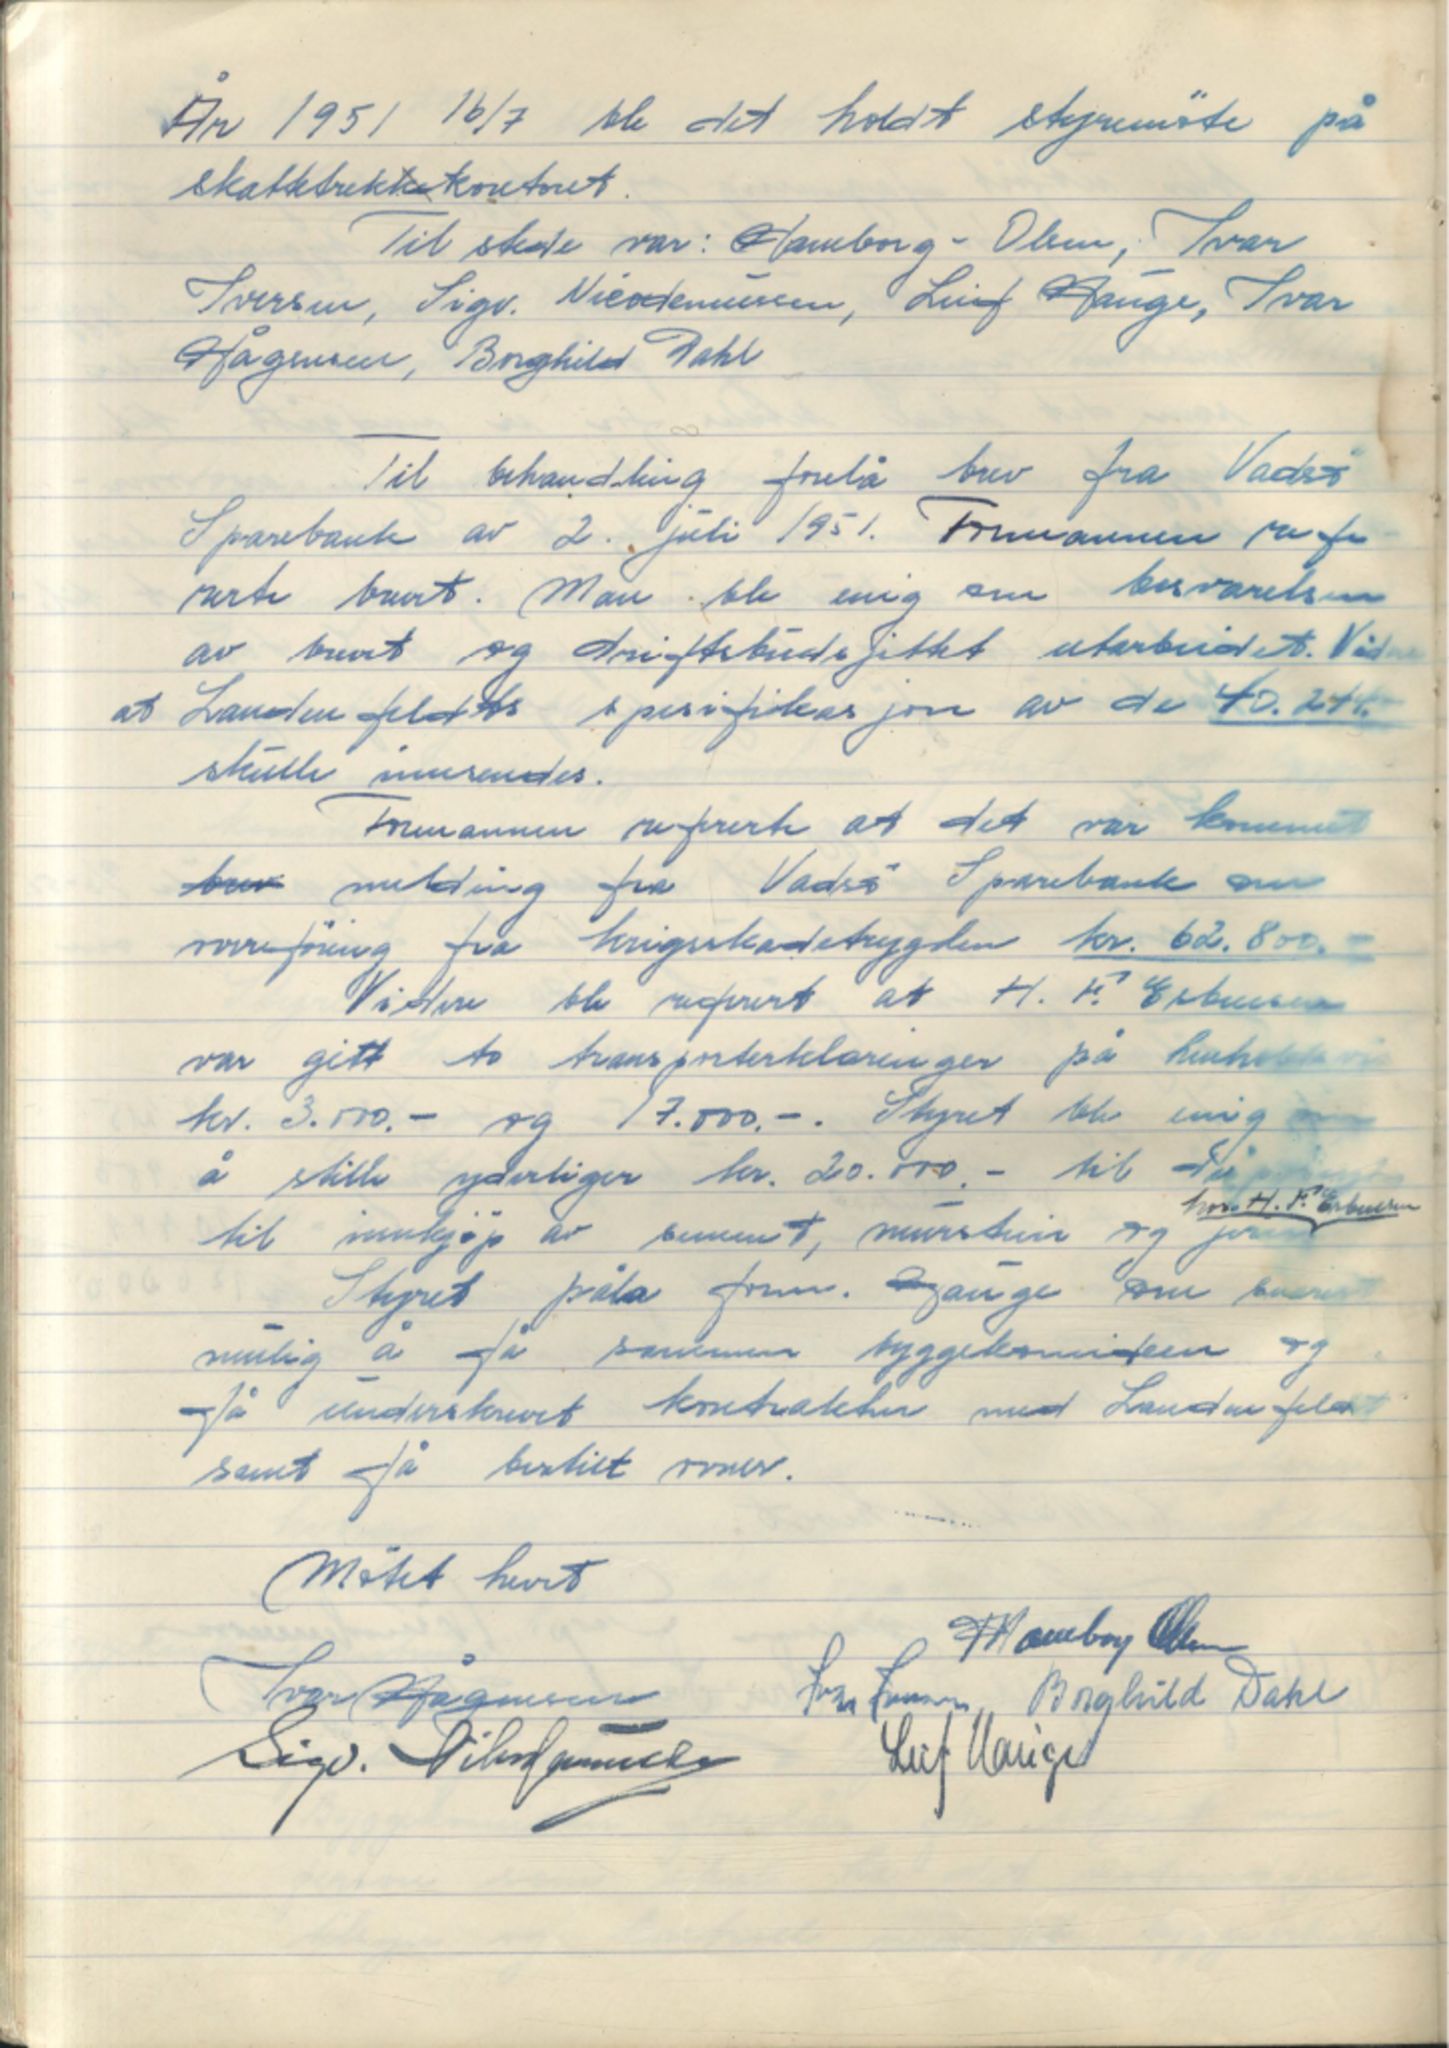 År 1951 16/7 ble det holdt styremöte på
skattetrekkkontoret.
Til stede var: Hamborg-Olsen, Ivar
Iversen, Sigv. Nicodemussen, Leif Hauge, Ivar
Hågensen, Borghild Dahl
Til behandling forelå brev fra Vadsö
Sparebank av 2. juli 1951. Formannen refe-
rerte brevet. Man ble enig om besvarelsen
av brevet og driftsbudsjettet utarbeidet. Videre
at Landenfeldts spesifikasjon av de 40.241.-
skulle innsendes.
Formannen refererte at det var kommet
brev melding fra Vadsö Sparebank om
overföring fra krigsskadetrygden kr. 62.800.-
Videre ble referert at H. F. Esbensen
var gitt to transporterklæringer på henholdsvis
kr. 3.000.- og 17.000.-. Styret ble enig om
å stille yderliger kr. 20.000.- til
hos H. F. Esbensen
til innkjøp av sement, murstein og jern
Styret påla form. Hauge om snarest
mulig å få sammen byggekomiteen og
få underskrevet kontrakter med Landenfeldt
samt få bestilt ovner.
Mötet hevet
Hamborg Olsen
Ivar Hågensen Ivar Iversen Borghild Dahl
Sigv. Nicodemussen Leif Hauge